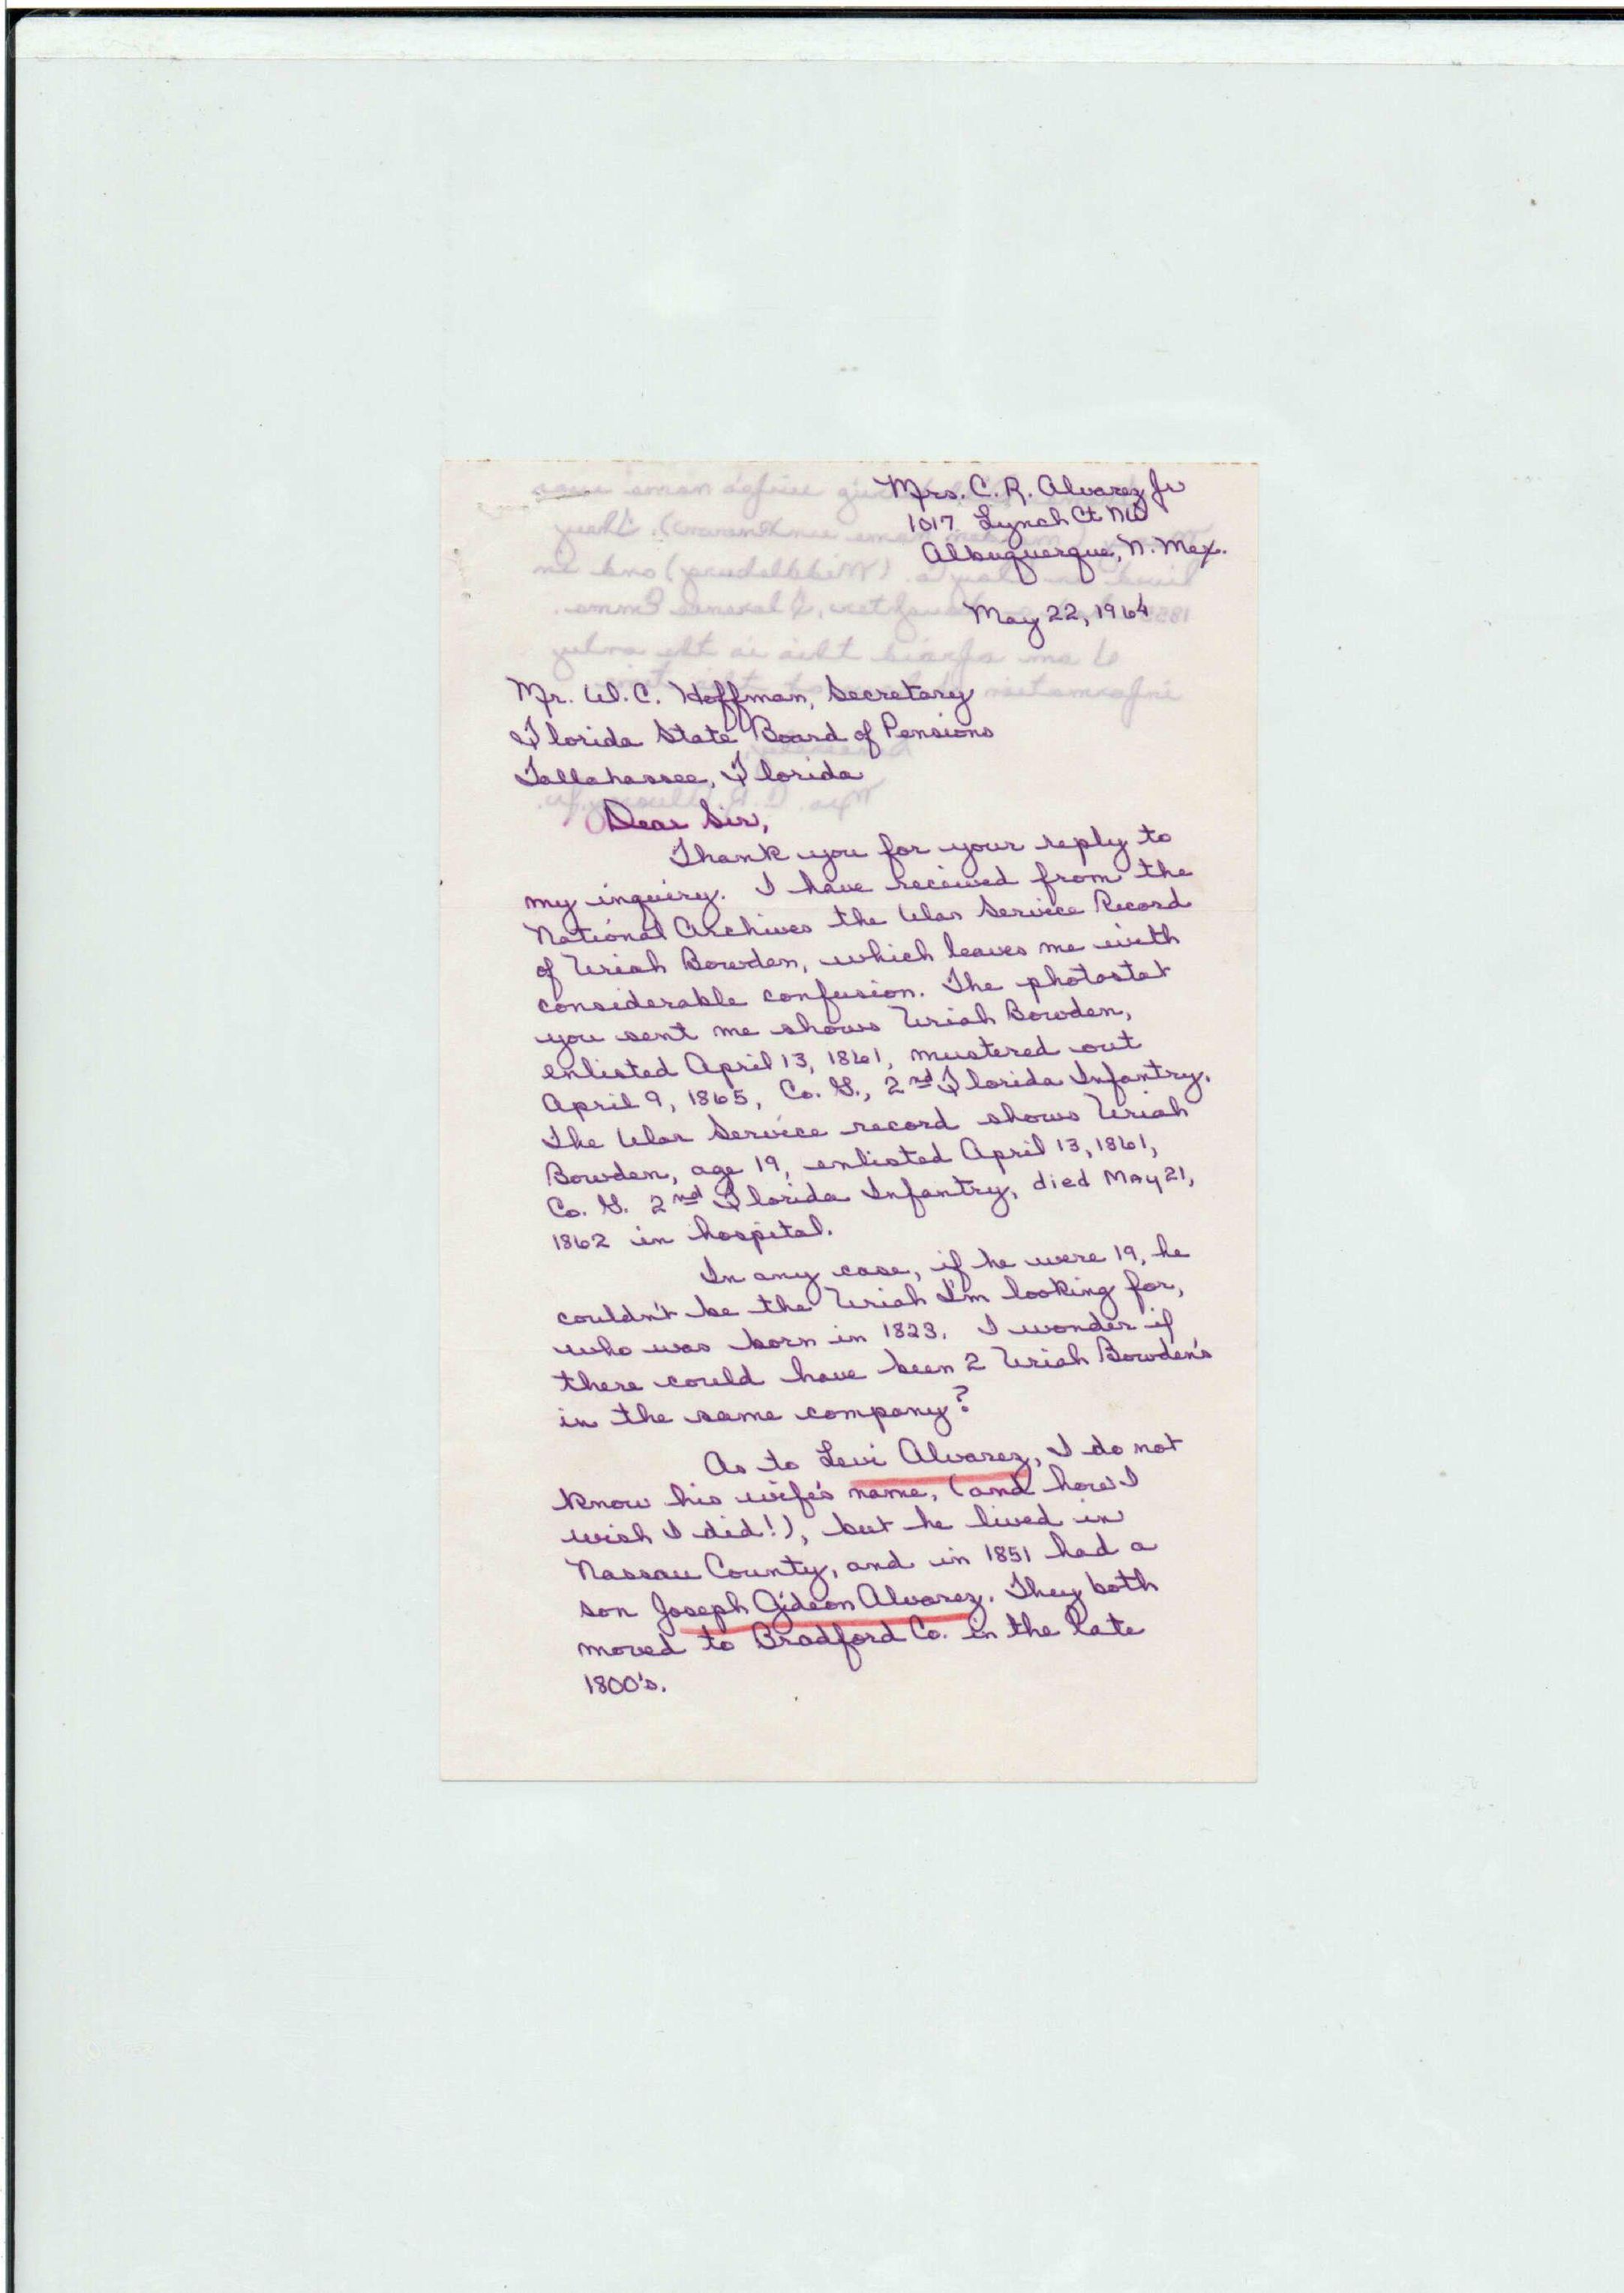 Mrs. C. R. Alvarez Jr
1017 Lynch Ct NW
Albuquerque, N. Mex.
May 22, 1964
Mr. W. C. Hoffman, Secretary
Florida State Board of Pensions
Tallahassee, Florida
Dear Sir,
Thank you for your reply to
my inquiry. I have received from the
National Archives the War Service Record
of Uriah Bowden, which leaves me with
considerable confusion. The photostat
you sent me shows Uriah Bowden,
enlisted April 13, 1861, mustered out
April 9, 1865, Co. G., 2nd Florida Infantry.
The War Service record shows Uriah
Bowden, age 19, enlisted April 13, 1861,
Co. G. 2nd Florida Infantry, died May 21,
1862 in hospital.
In any case, if he were 19, he
couldn't be the Uriah I'm looking for,
who was born in 1823. I wonder if
there could have been 2 Uriah Bowden's
in the same company?
As to Levi Alvarez, I do not
know his wife's name, (and how I
wish I did!), but he lived in
Nassau County, and in 1851 had a
son Joseph Gideon Alvarez. They both
moved to Bradford Co. in the late
1800's.